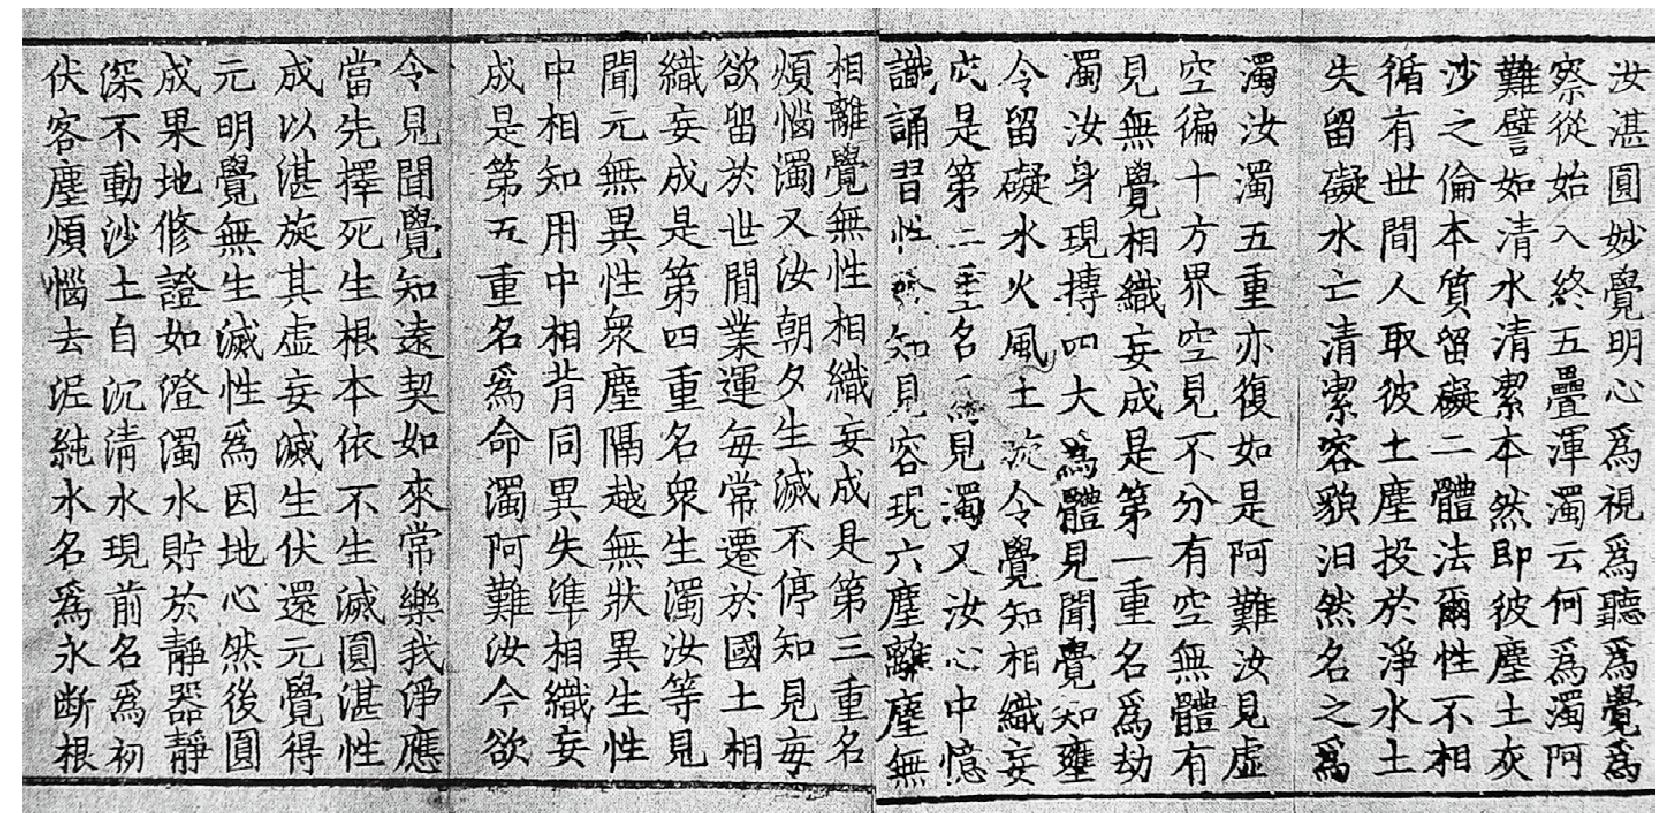 汝湛圓妙覺明心爲視爲聽爲覺爲
察從始入終五疊渾濁云何爲濁阿
難譬如清水清潔本然即彼塵土灰
沙之倫本質留礙二體法爾性不相
循有世間人取彼土塵投於淨水土
失留礙水亡清潔容貌汩然名之爲
濁汝濁五重亦復如是阿難汝見虛
空徧十方界空見不分有空無體有
見無覺相織妄成是第一重名爲劫
濁汝身現摶四大爲體見聞覺知壅
令留礙水火風土旋令覺知相織妄
成是第二重名見濁又汝心中憶
識誦習性發知見容現六塵離塵無
相離覺無性相織妄成是第三重名
煩惱濁又汝朝夕生滅不停知見每
欲留於世間業運每常遷於國土相
織妄成是第四重名衆生濁汝等見
聞元無異性衆塵隔越無狀異生性
中相知用中相背同異失準相織妄
成是第五重名爲命濁阿難汝今欲
令見聞覺知遠契如來常樂我淨應
當先擇死生根本依不生滅圓湛性
成以湛旋其虛妄滅生伏還元覺得
元明覺無生滅性爲因地心然後圓
成果地修證如澄濁水貯於靜器靜
深不動沙土自沉清水現前名爲初
伏客塵煩惱去泥純水名爲永断根